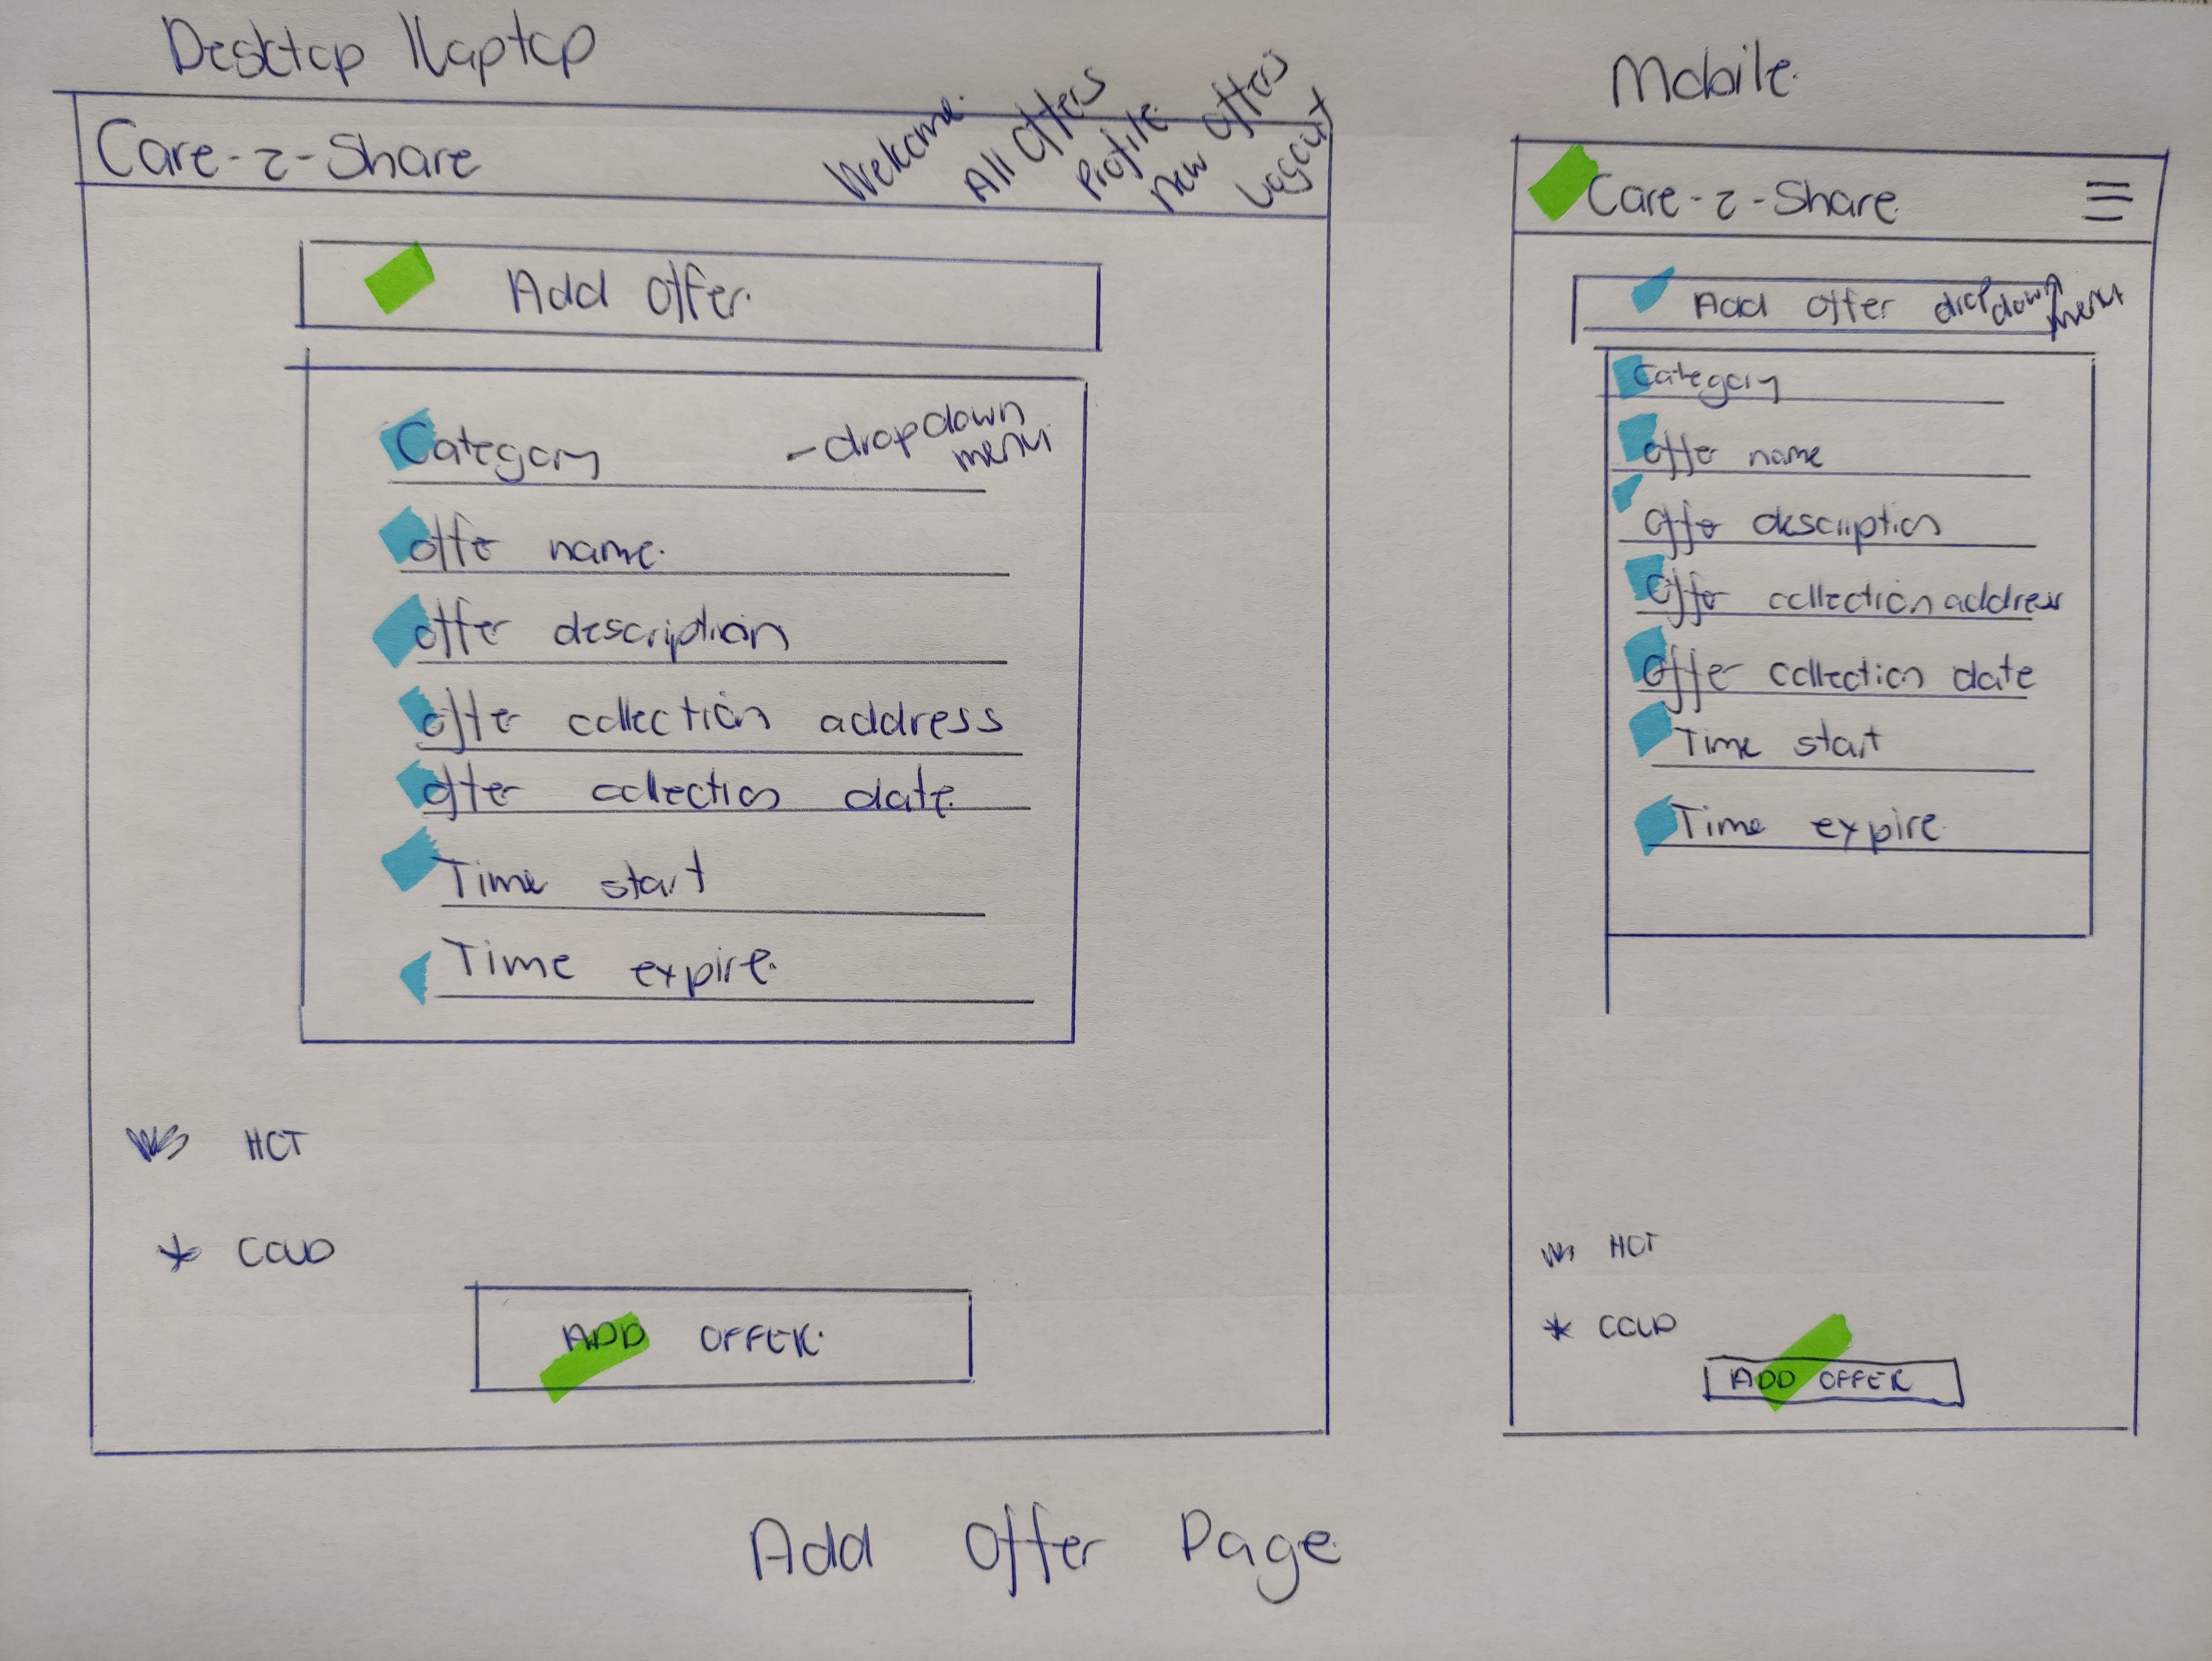 Desktop / Laptop
Care-2-Share
Welcome.
All Offers
Profile.
New Offers
Logout
Add Offer.
Category - dropdown menu
offer name.
offer description
offer collection address
offer collection date.
Time start
Time expire.
HOT
COLD
ADD OFFER.
Mobile.
Care-2-Share
Add offer dropdown menu
Category
offer name
offer description
offer collection address
offer collection date
Time start
Time expire.
HOT
COLD
ADD OFFER
Add Offer Page.